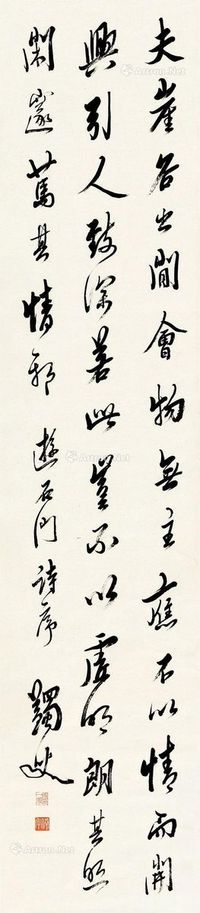 夫崖谷之間會物無主應不以情而開
興引人致深若此豈不以虛明朗其照
閑邃篤其情邪 遊石門詩序 蠲叟
Artron.Net